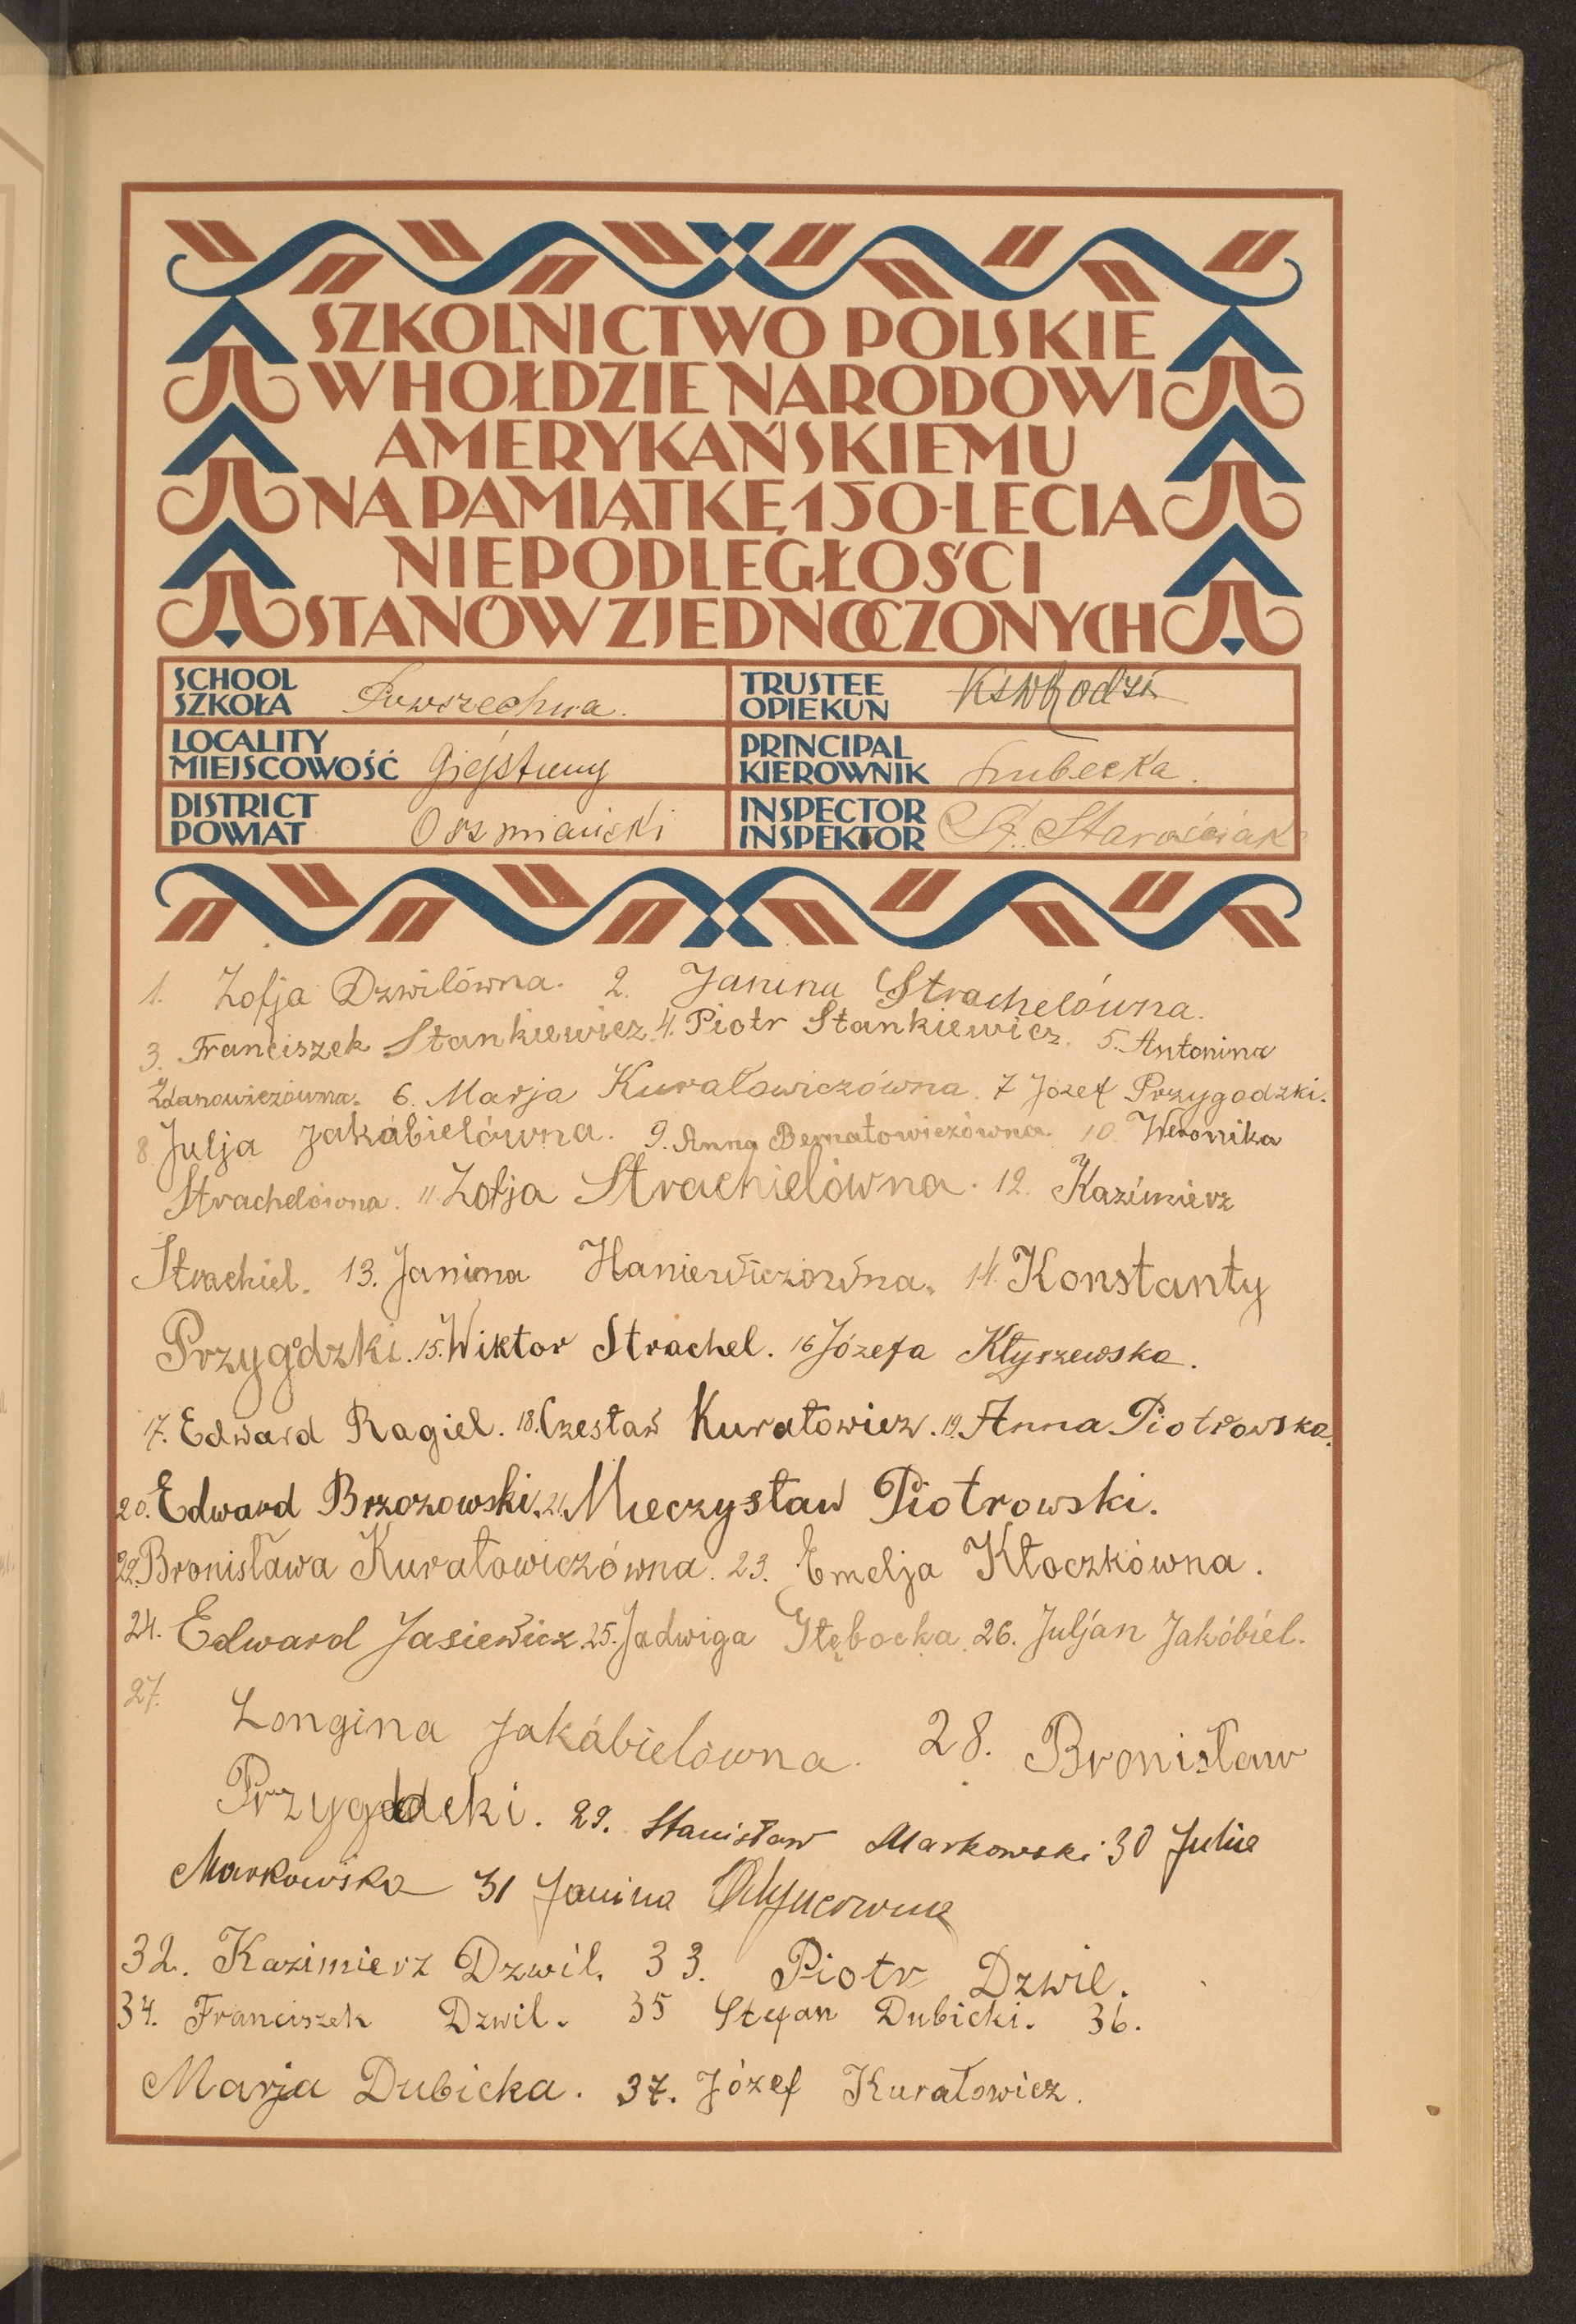 SZKOLNICTWO POLSKIE
W HOŁDZIE NARODOWI
AMERYKAŃSKIEMU
NA PAMIĄTKĘ 150-LECIA
NIEPODLEGŁOŚCI
STANÓW ZJEDNOCZONYCH
SCHOOL
SZKOŁA Powszechna.
TRUSTEE
OPIEKUN
LOCALITY
MIEJSCOWOŚĆ Giejstuny
PRINCIPAL
KIEROWNIK Lubecka.
DISTRICT
POWIAT Oszmiański
INSPECTOR
INSPEKTOR St. Starościak
1. Zofja Dzwilówna. 2. Janina Strachelówna.
3. Franciszek Stankiewicz 4. Piotr Stankiewicz. 5. Antonina
Zdanowiczówna. 6. Marja Kurałowiczówna. 7 Józef Przygodzki.
8 Julja Jakóbielówna. 9. Anna Bernatowiczówna. 10. Weronika
Strachelówna. 11. Zofja Strachielówna. 12. Kazimierz
Strachiel. 13. Janina Haniewiczówna. 14. Konstanty
Przygodzki. 15. Wiktor Strachel. 16 Józefa Kłyszewska.
17. Edward Ragiel. 18. Czesław Kurałowicz. 19. Anna Piotrowska.
20. Edward Brzozowski. 21. Mieczysław Piotrowski.
22. Bronisława Kurałowiczówna. 23. Emelja Kłoczkówna.
24. Edward Jasiewicz 25. Jadwiga Głębocka. 26. Juljan Jakóbiel.
27.
Longina Jakóbielówna. 28. Bronisław
Przygodcki. 29. Stanisław Markowski 30 Julia
Markowska 31 Janina
32. Kazimierz Dzwil. 33. Piotr Dzwil.
34. Franciszek Dzwil. 35 Stefan Dubicki. 36.
Marja Dubicka. 37. Józef Kurałowicz.